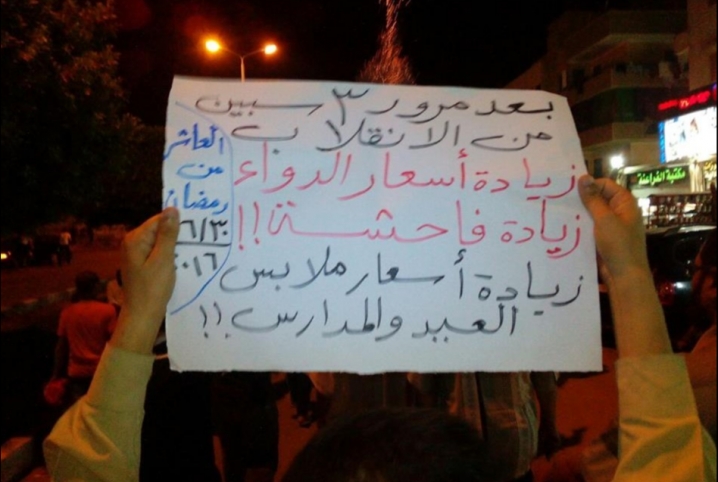 بعد مرور ٣ سنين
من الانقلاب
زيادة أسعار الدواء
زيادة فاحشة!!
زيادة أسعار ملابس
العيد والمدارس!!
العاشر
من
رمضان
٦/٣٠
٢٠١٦
مكتبة الفراعنة